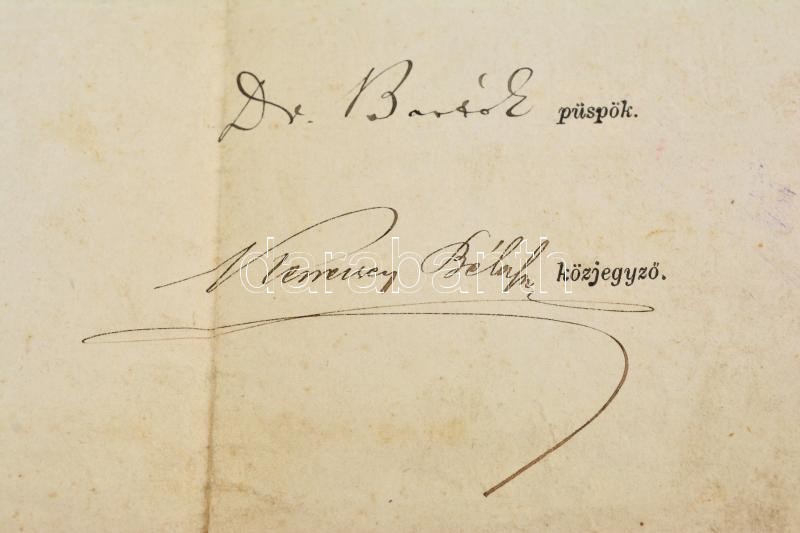 Dr. Bartók püspök.
Béla közjegyző.
darabanth